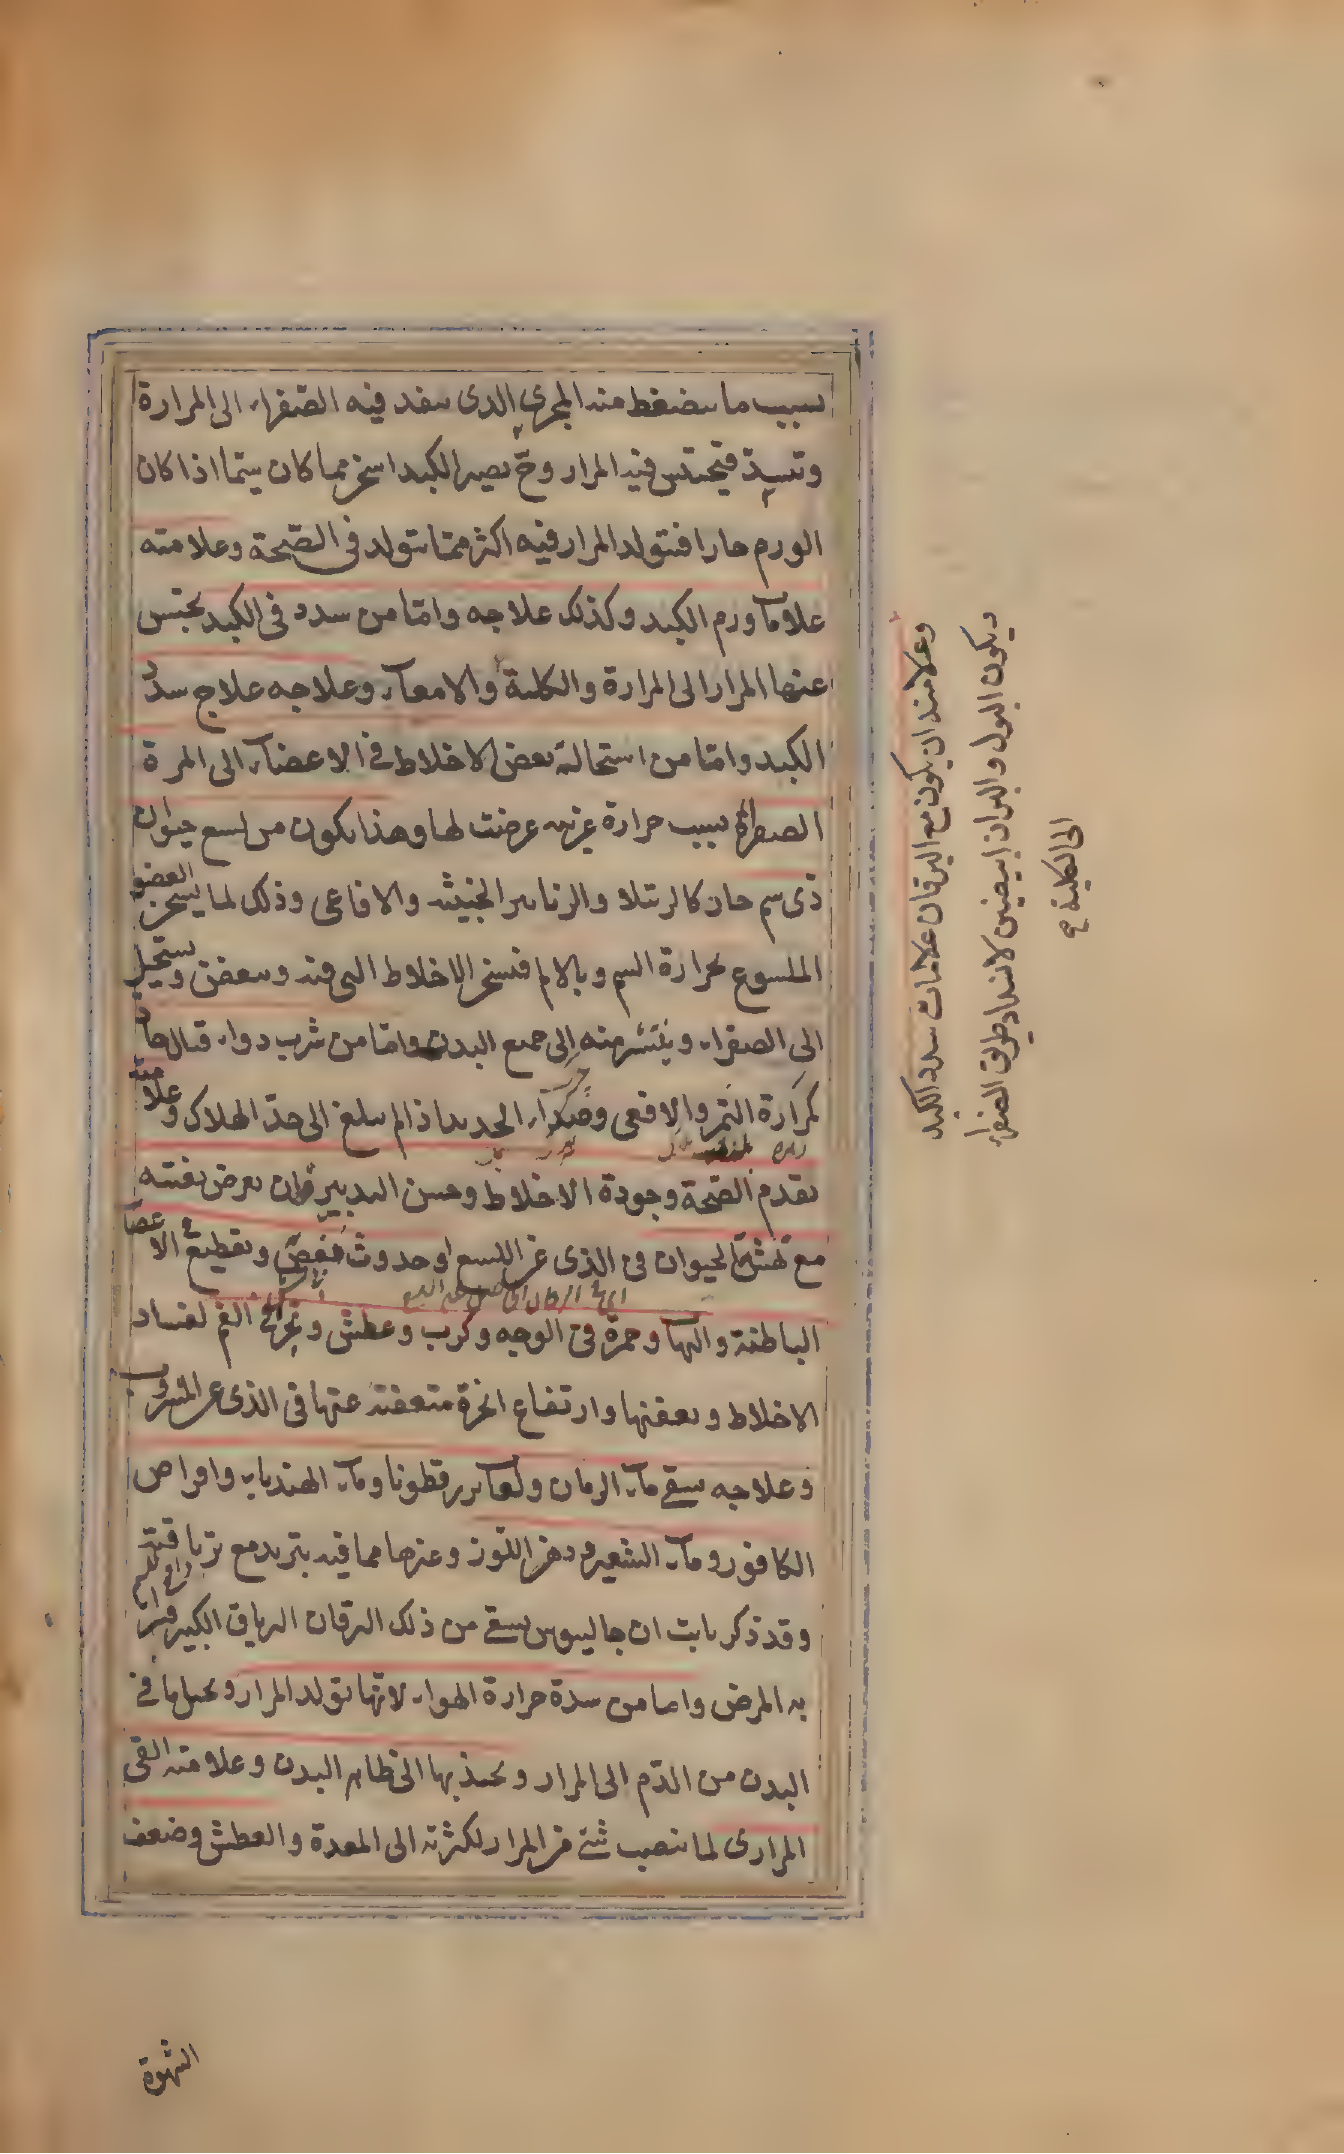 بسبب ما ينضغط منه المجرى الذى ينفد فيه الصفراء الى المرارة
وتنسد فيحتبس فيه المرار وح يصير الكبد اسخن مما كان سيما اذا كان
الورم حارا فيتولد المرار فيه اكثر مما يتولد فى الصحة وعلامته
علامات ورم الكبد وكذلك علاجه واما من سدد فى الكبد يحتبس
عنها المرار الى المرارة والكلية والامعاء وعلاجه علاج سدد
الكبد واما من استحالة بعض الاخلاط فى الاعضاء الى المرة
الصفراء بسبب حرارة غريبة عرضت لها وهذا يكون من لسع حيوان
ذى سم حار كالرتيلا والزنابير الخبيثة والافاعى وذلك لما يسخن العضو
الملسوع بحرارة السم وبالالم فيسخن الاخلاط التى فيه ويتعفن ويستحيل
الى الصفراء وينتشر منه الى جميع البدن واما من شرب دواء قتال حار
كمرارة النمر والافعى الحديد اذا لم يبلغ الى حد الهلاك وعلامته
تقدم الصحة وجودة الاخلاط وحسن التدبير فان يعرض بغتة
مع نهشة الحيوان فى الذى عن اللسع او حدوث مغص وتقطيع فى الاعضاء
الباطنة والتهاب وحمرة فى الوجه وكرب وعطش الفم لفساد
الاخلاط وتعفنها وارتفاع ابخرة متعفنة عنها فى الذى عن المشروب
وعلاجه سقى ماء الرمان ولعاب بزرقطونا وماء الهندباء واقراص
الكافور وماء الشعير ودهن اللوز وغيرها مما فيه تبريد مع ترياقية
وقد ذكر ثابت ان جالينوس يسقى من ذلك اليرقان الترياق الكبير فيبرا
به المرض واما من شدة حرارة الهواء لانها تولد المرار وتحيل ما فى
البدن من الدم الى المرار وتجذبها الى ظاهر البدن وعلامته القى
المرارى لما ينصب شئ من المرار لكثرته الى المعدة والعطش وضعف
الشهوة
وعلامته ان يكون مع اليرقان علامات سدد الكبد
ويكون البول والبراز ابيضين لانسداد طريق الصفراء
الى الكلية